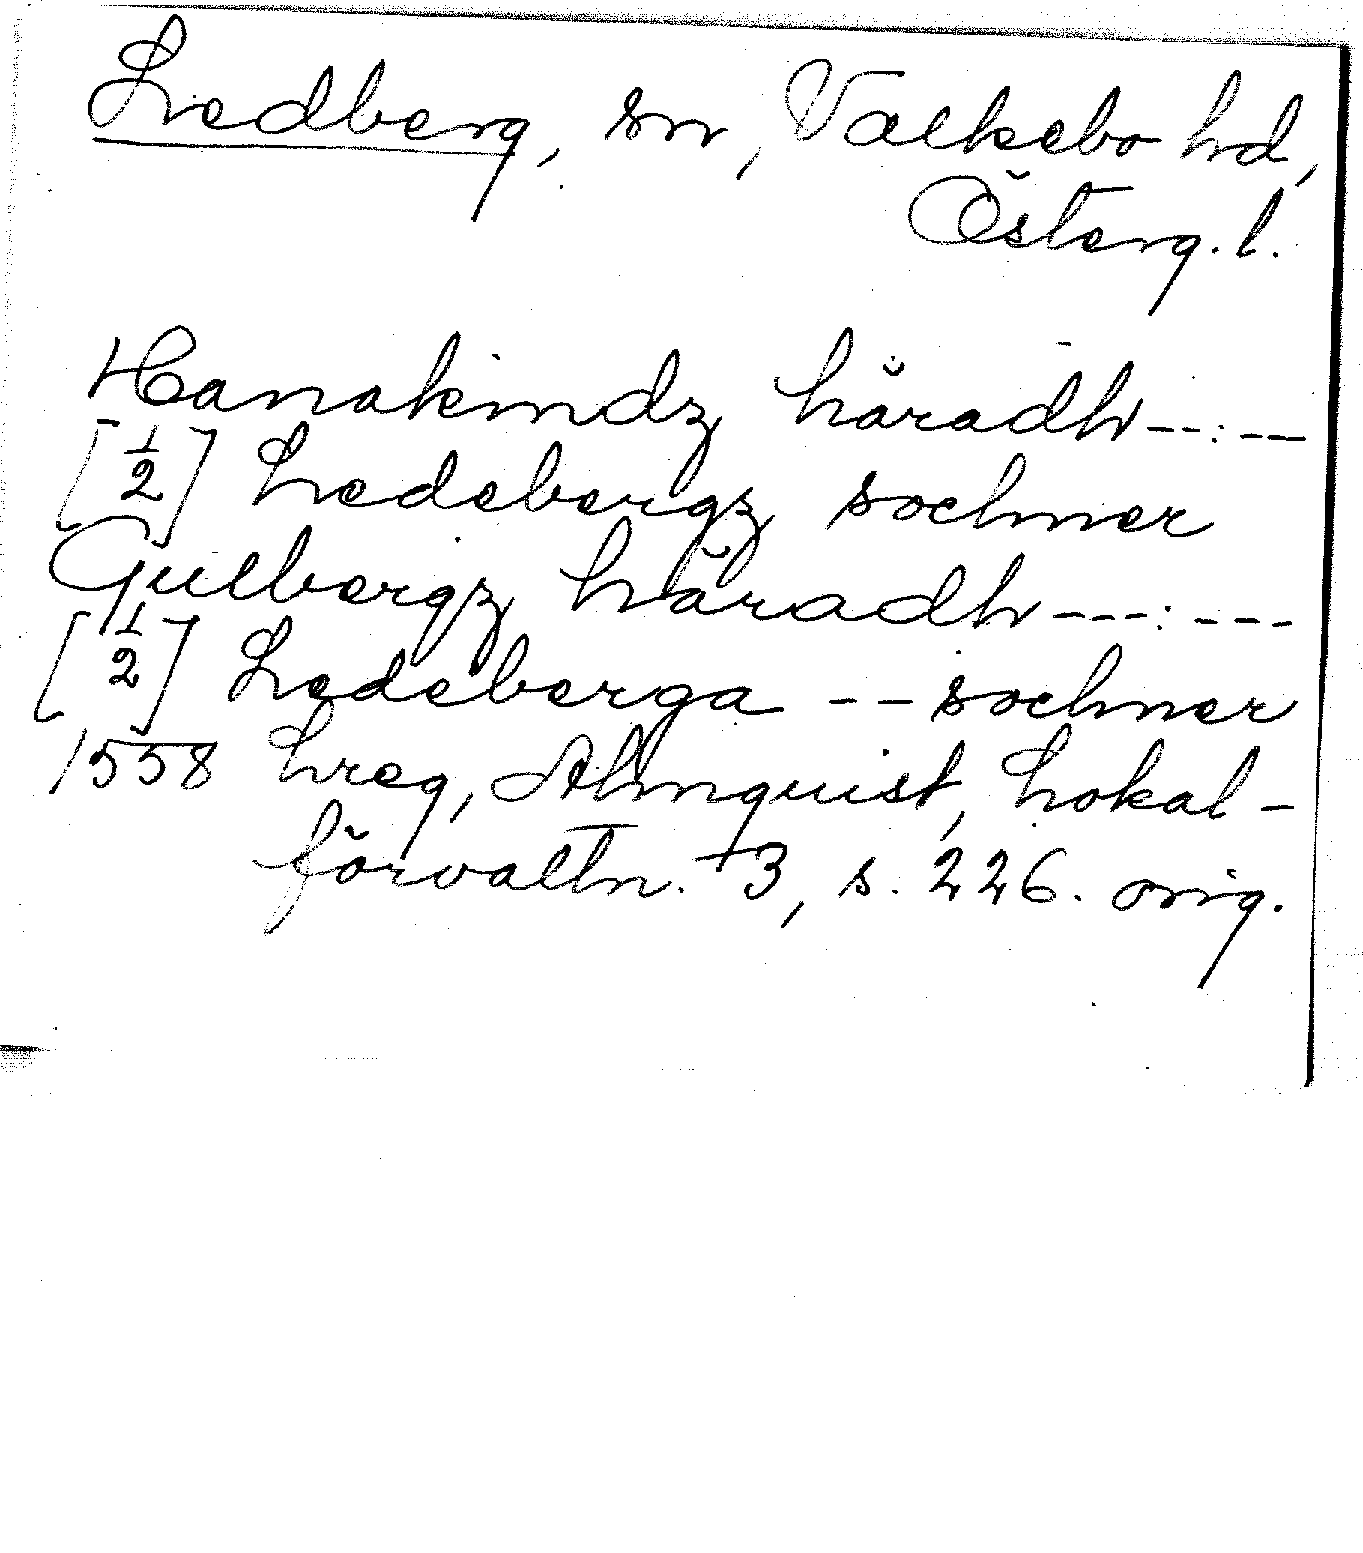 Ledberg, sn, Valkebo hd,
Österg. l.
Hanakindz häradh --:--
[½] Ledebergz sochner
Gulbergz häradh ---:---
[½] Ledeberga -- sochner
1558 Lreg, Almquist, Lokal-
förvaltn. 3, s. 226. orig.